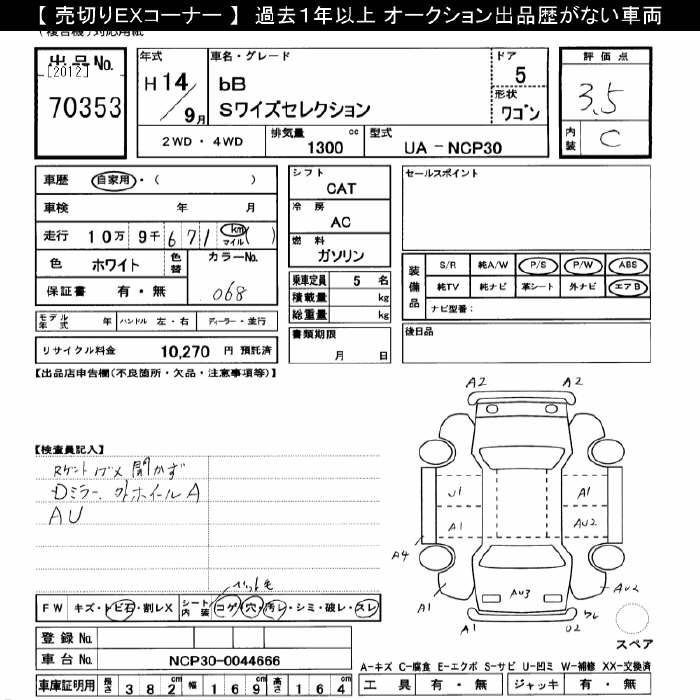 【 売切りEXコーナー 】 過去１年以上 オークション出品歴がない車両
出品No.
[2012]
70353
年式
H 14
9月
車名・グレード
bB
Sワイズセレクション
ドア
5
形状
ワゴン
2WD ・ 4WD
排気量
1300 cc
型式
UA - NCP30
評価点
3.5
内装
C
車歴
自家用・( )
車検
年 月
走行
10万 9千 6 7 1 km マイル ( )
色
ホワイト
色替
カラーNo.
068
保証書
有・無
モデル年式
年
ハンドル
左・右
ディーラー・並行
リサイクル料金
10,270 円 預託済
シフト
CAT
冷房
AC
燃料
ガソリン
乗車定員
5 名
積載量
kg
総重量
kg
書類期限
月 日
セールスポイント
装備品
S/R 純A/W P/S P/W ABS
純TV 純ナビ 革シート 外ナビ エアB
ナビ型番：
後日品
【出品店申告欄(不良箇所・欠品・注意事項等)】
【検査員記入】
Rゲートガラス開かず
Dミラー、外ホイールA
AU
ペット毛
FW
キズ・トビ石・割レX
シート内装
コゲ・穴・汚レ・シミ・破レ・スレ
登録No.
車台No.
NCP30-0044666
車庫証明用
長さ 382cm 幅 169cm 高さ 164cm
A2 A2
U1 A1
A1 AU2
A4 A1
AU3 AU2
A1 U2
スペア
A-キズ C-腐食 E-エクボ S-サビ U-凹ミ W-補修 XX-交換済
工具
有・無
ジャッキ
有・無